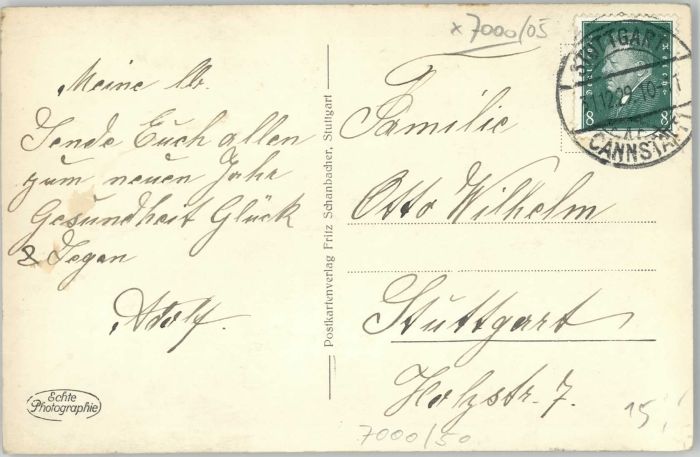 x 7000/05
Meine lb.
Sende Euch allen
zum neuen Jahr
Gesundheit Glück
& Segen
Adolf.
Echte
Photographie
Postkartenverlag Fritz Schanbacher, Stuttgart
STUTTGART
31.12.29. 10-11
CANNSTATT
8 8
Familie
Otto Wilhelm
Stuttgart
Holzstr. 7.
15,-
7000/50